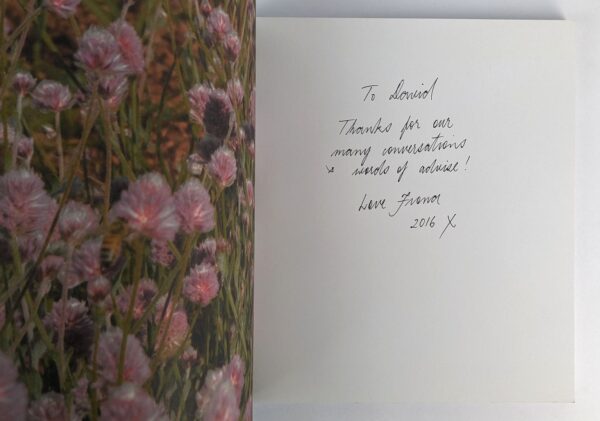 To David
Thanks for our
many conversations
& words of advise!
Love Fiona
2016 X